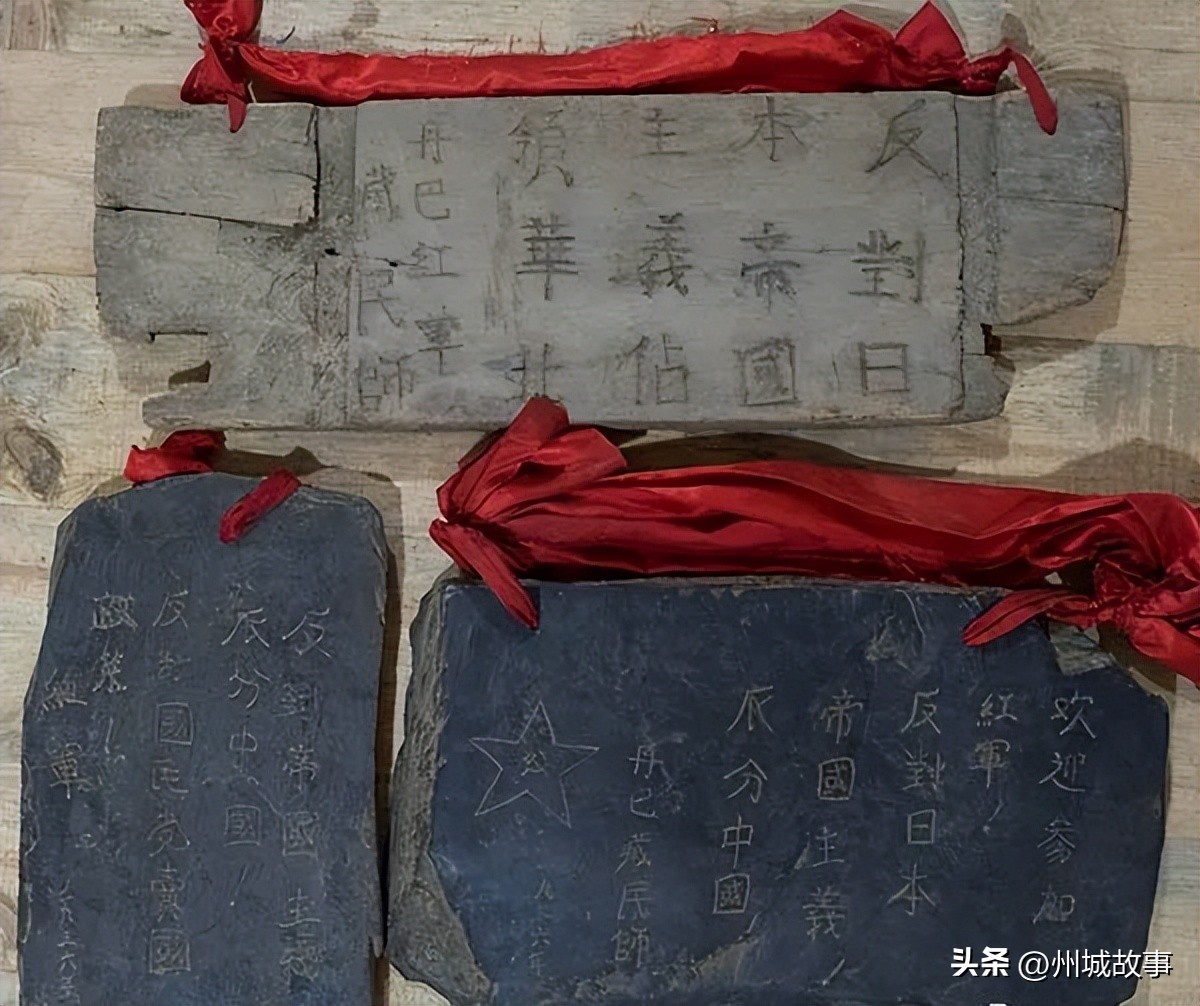 反對日
本帝國
主義佔
領華北
丹巴紅軍
藏民師
反對帝國主義
瓜分中國！
反對國民党賣國
政策！
紅軍
一九三六年
欢迎参加
紅軍！
反對日本
帝國主義！
瓜分中國
丹巴藏民師
头条 @州城故事